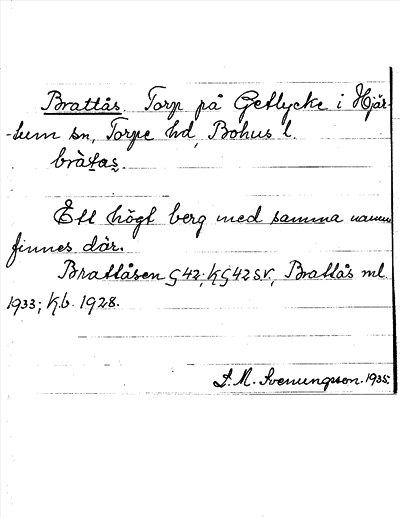 Brattås. Torp på Getlycke i Hjär-
-tum sn, Torpe hd, Bohus l.
bràtas.
Ett högt berg med samma namn
finnes där.
Brattåsen G42; KG42SV, Brattås ml
1933; Kb. 1928.
S. M. Svenungsson. 1935.